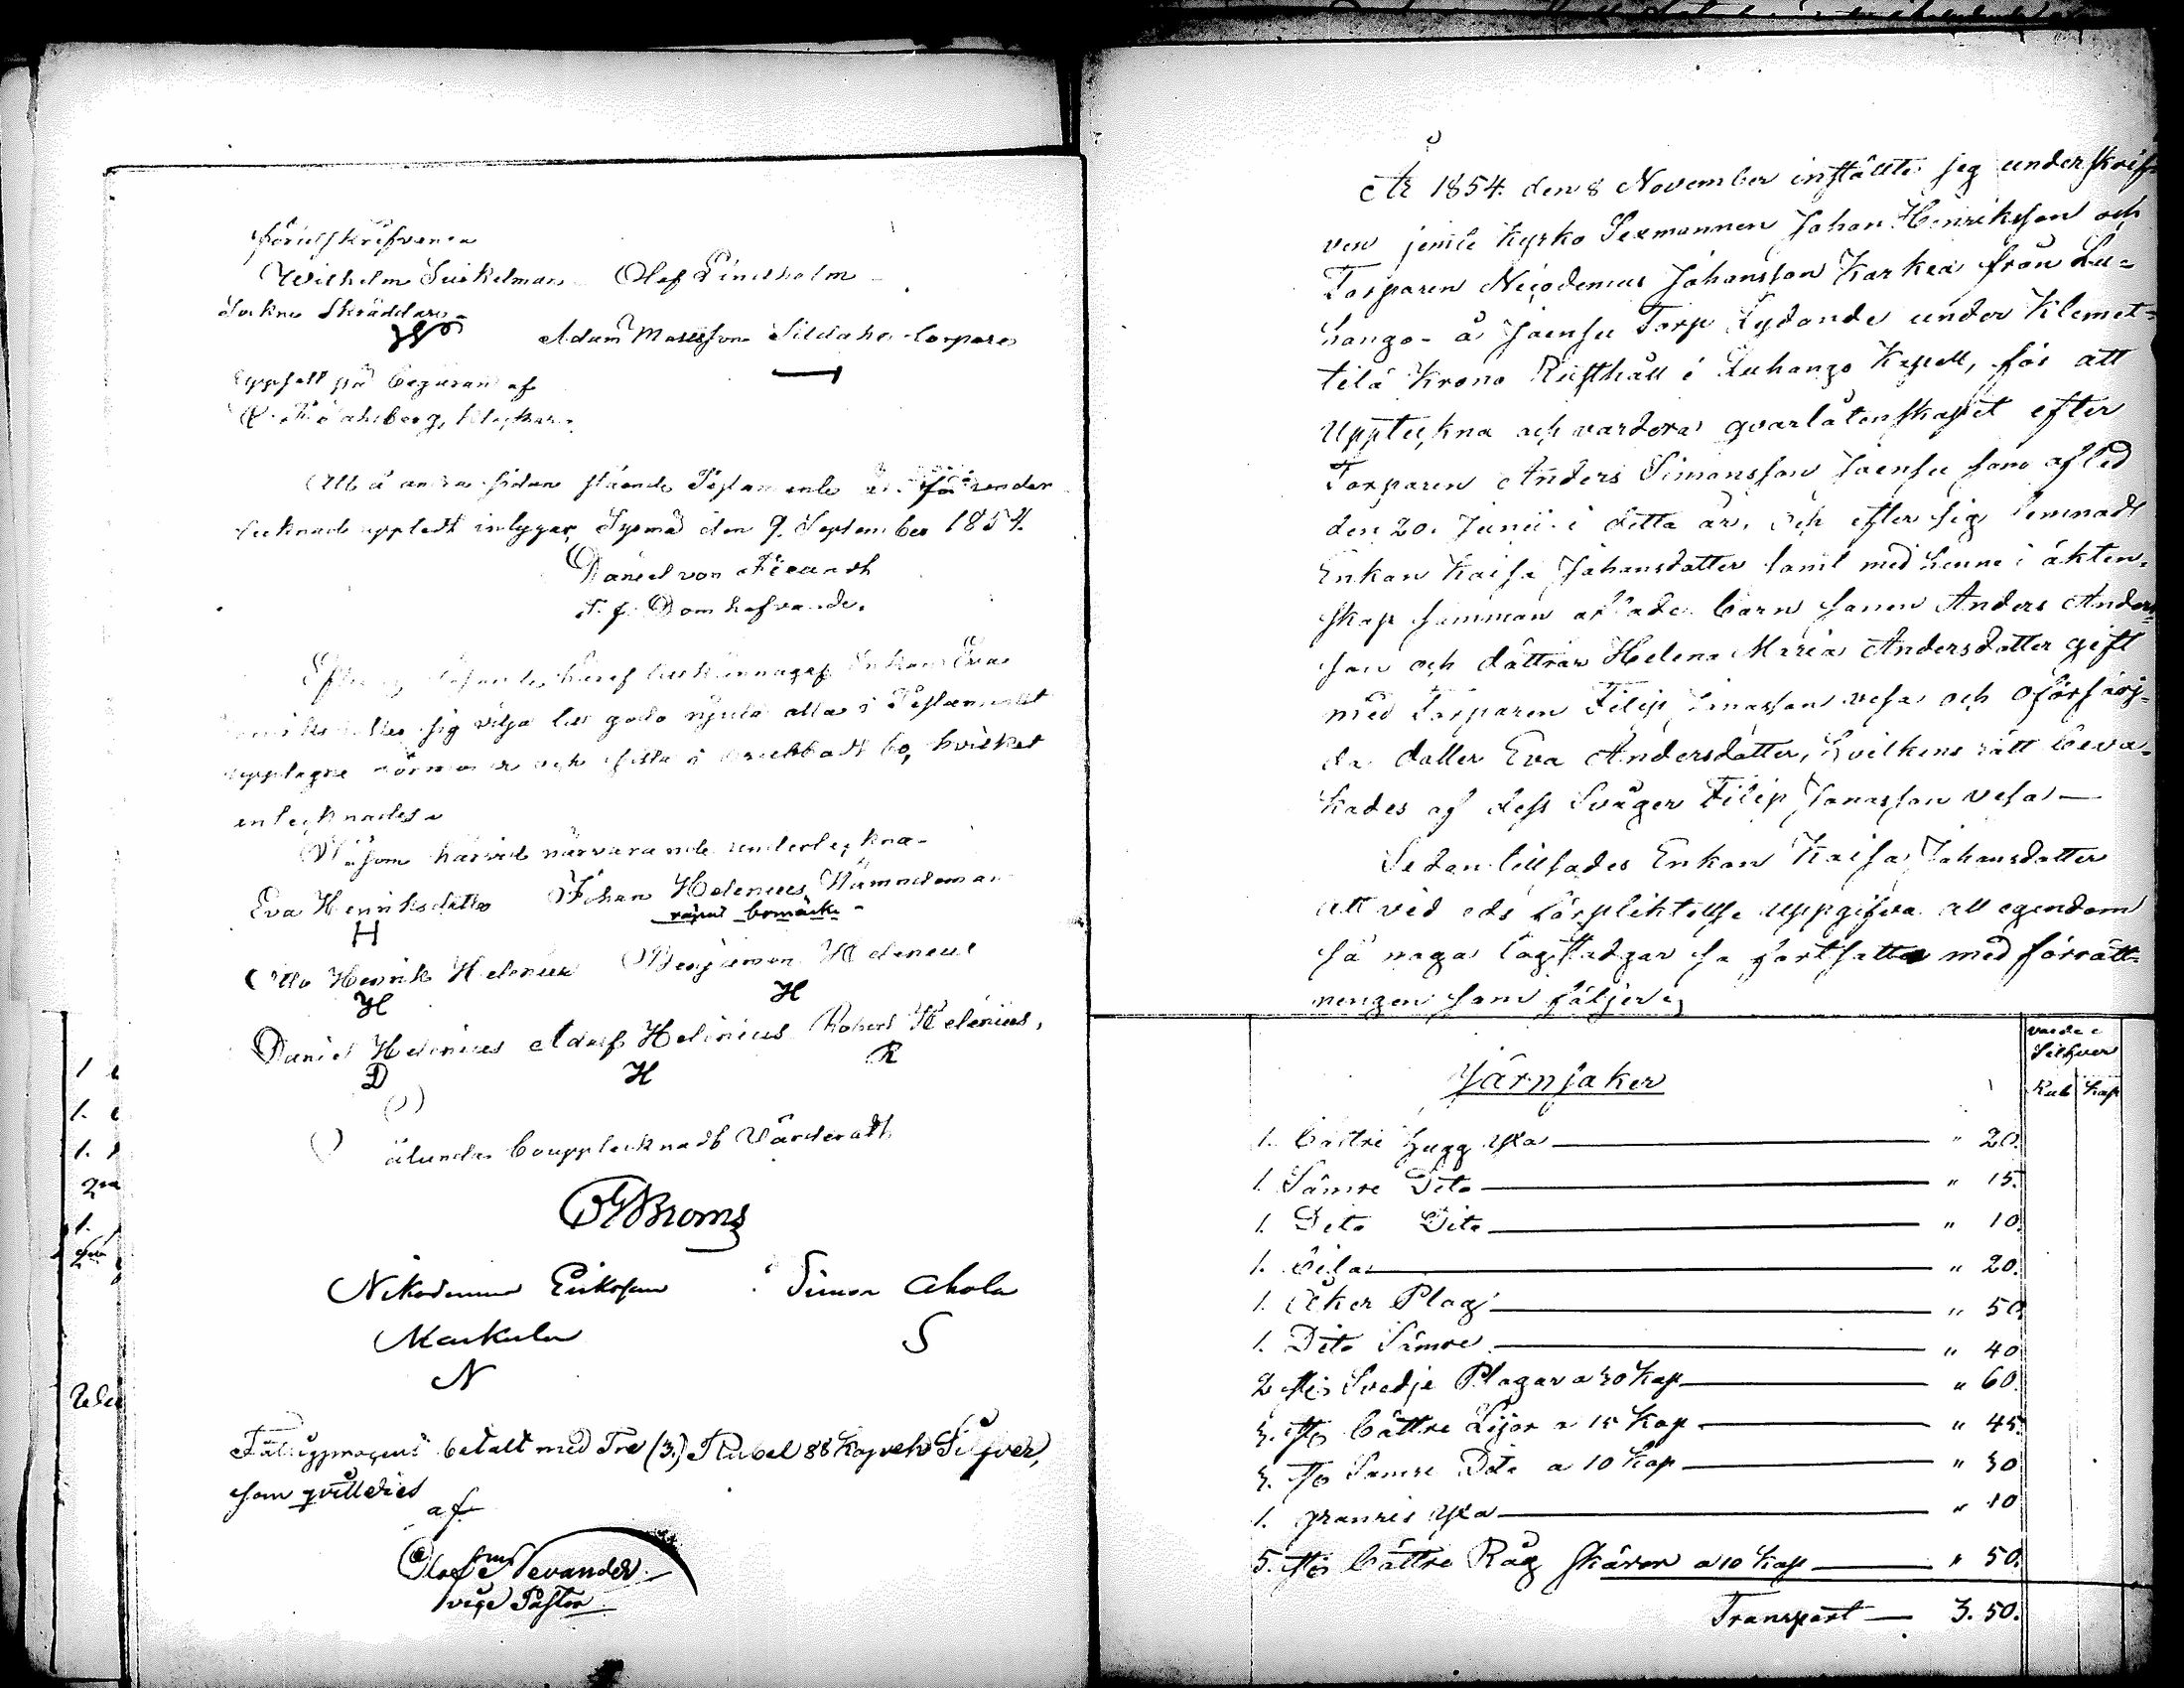 förutskrefvena
Wilhelm Finkelman Olof Lindholm
Sockne Skräddare
Adam Matsson Sildaho torpare
Uppsatt på begäran af
Klockare
Att å andra sidan stående Testamente är för under
tecknad uppledt intygar, Sysmä den 9. September 1854.
Daniel von Fieandt
T. f. Domhafvande.
Efter Enkan Eva
sig vilja till godo njuta alla i Testamentet
upptagne förmoner och sitta i orubbadt bo, hvilket
antecknades
Vi som härvid närvarande underteckna
Eva Henriksdotter Johan Helenius Nämndeman
H bomärke
Otto Henrik Helenius Benjamin Helenius
H H
Daniel Helenius Adolf Helenius Robert Helenius,
D H R
ålunda bouptecknadt Värderadt
Broms
Nikodemus Eriksson Simon Ahola
Markula S
N
Fattigprocent betalt med Tre (3.) Rubel 88 Kopek Silfver,
som qvitteras
af
Olof Levander
vice Pastor
År 1854 den 8 November inställte jeg underskrif-
ven jemte Kyrko Sexmannen Johan Henriksson och
Torparen Nicodemus Johansson Karkea från Lu-
hango å Jaensu Torp Lydande under Klemet-
tilä Krono Rusthåll i Luhango Kapell, för att
Upptekna och vardera qvarlåtenskapet efter
Torparen Anders Simonsson Jaensu som afled
den 20. Junii i detta år, och efter sig lemnadt
Enkan Kaisa Johansdotter samt med henne i äkten-
skap samman aflade barn sonen Anders Anders-
son och döttrar Helena Maria Andersdotter gift
med Torparen Filip Jonasson vesa och oförsörj-
da dotter Eva Andersdotter, hvilkens rätt beva-
kades af dess Svåger Filip Jonasson vesa —
Sedan tillsades Enkan Kaisa Johansdotter
att vid eds förpliktellse uppgifva all egendom
så noga lag stadgar sa fortsattes med förrätt-
nengen som följer
värde i
Silfver
Järnsaker Rub Kop
1. bättre hugg yxa — " 20.
1. Sämre Dito — " 15.
1. Dito Dito — " 10.
1. bila — " 20.
1. Åker Plog — " 50
1. Dito Sämre — " 40
2 st. Svedje Plogar a 30 Kop — " 60.
3. st. bättre Lijor a 15 Kop — " 45.
3. st. Samre Dito a 10 Kop — " 30
1. granris yxa — " 10
5. st. bättre Råg skäror a 10 Kop — " 50.
Transport — 3. 50.